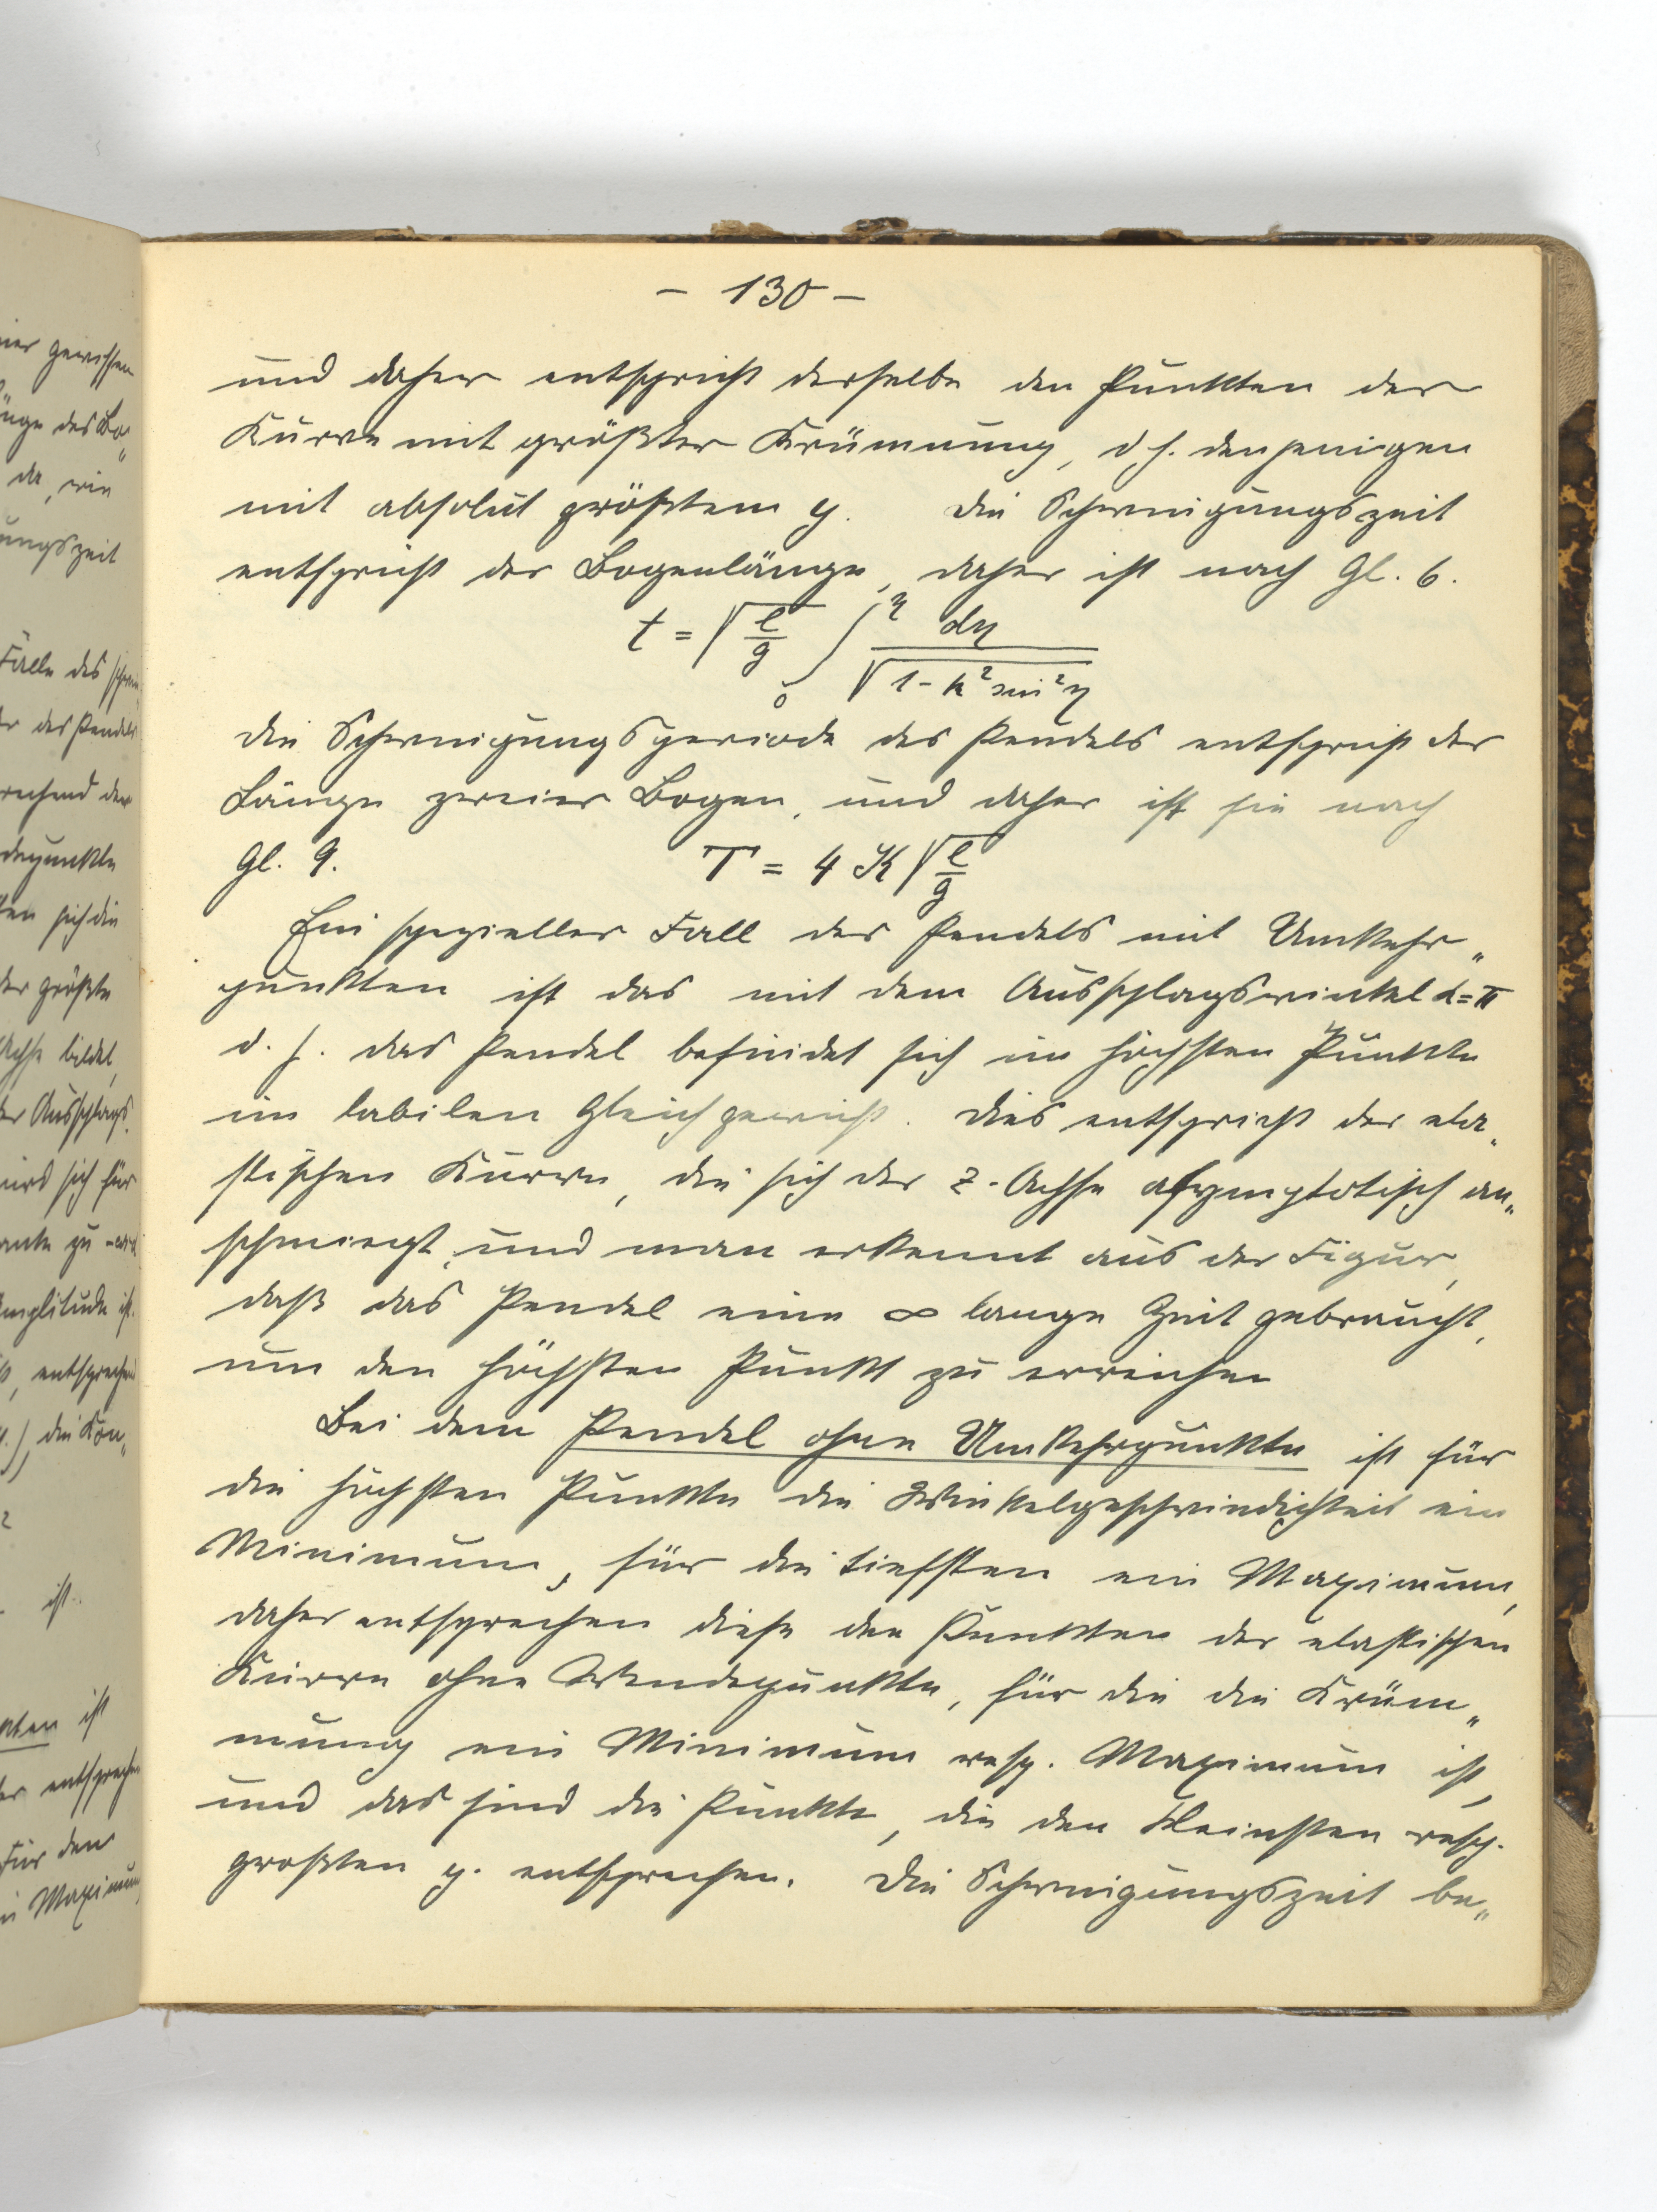 – 130 –
und daher entspricht derselbe den Punkten der
Kurve mit größter Krümmung, d. h. denjenigen
mit absolut größtem y. Die Schwingungszeit
entspricht der Bogenlänge, daher ist nach Gl. 6.
t = √(l/g) ∫₀^η dη / √(1 - k² sin² η)
Die Schwingungsperiode des Pendels entspricht der
Länge zweier Bogen, und daher ist sie nach
Gl. 9. T = 4 K √(l/g)
Ein spezieller Fall des Pendels mit Umkehr„
punkten ist das mit dem Ausschlagswinkel α = π
d. h. das Pendel befindet sich im höchsten Punkte
im labilen Gleichgewicht. Dies entspricht der ela„
stischen Kurve, die sich der z-Achse asymptotisch an„
schmiegt, und man erkennt aus der Figur,
daß das Pendel eine ∞ lange Zeit gebraucht,
um den höchsten Punkt zu erreichen
Bei dem Pendel ohne Umkehrpunkte ist für
die höchsten Punkte die Winkelgeschwindigkeit ein
Minimum, für die tiefsten ein Maximum,
daher entsprechen diese den Punkten der elastischen
Kurve ohne Wendepunkte, für die die Krüm„
mung ein Minimum resp. Maximum ist,
und das sind die Punkte, die den kleinsten resp.
grossten y. entsprechen. Die Schwingungszeit be„
ier gewissen
änge des Bo„
da, wie
ungszeit
Falle des
des Pendels
rechend der
depunkte
sich die
der größte
Achse bildet,
der Ausschlags„
wird sich für
Amplitude ist.
entsprechen
die Kon„
2
ist.
nkten ist
entsprechen
Für den
Maximum